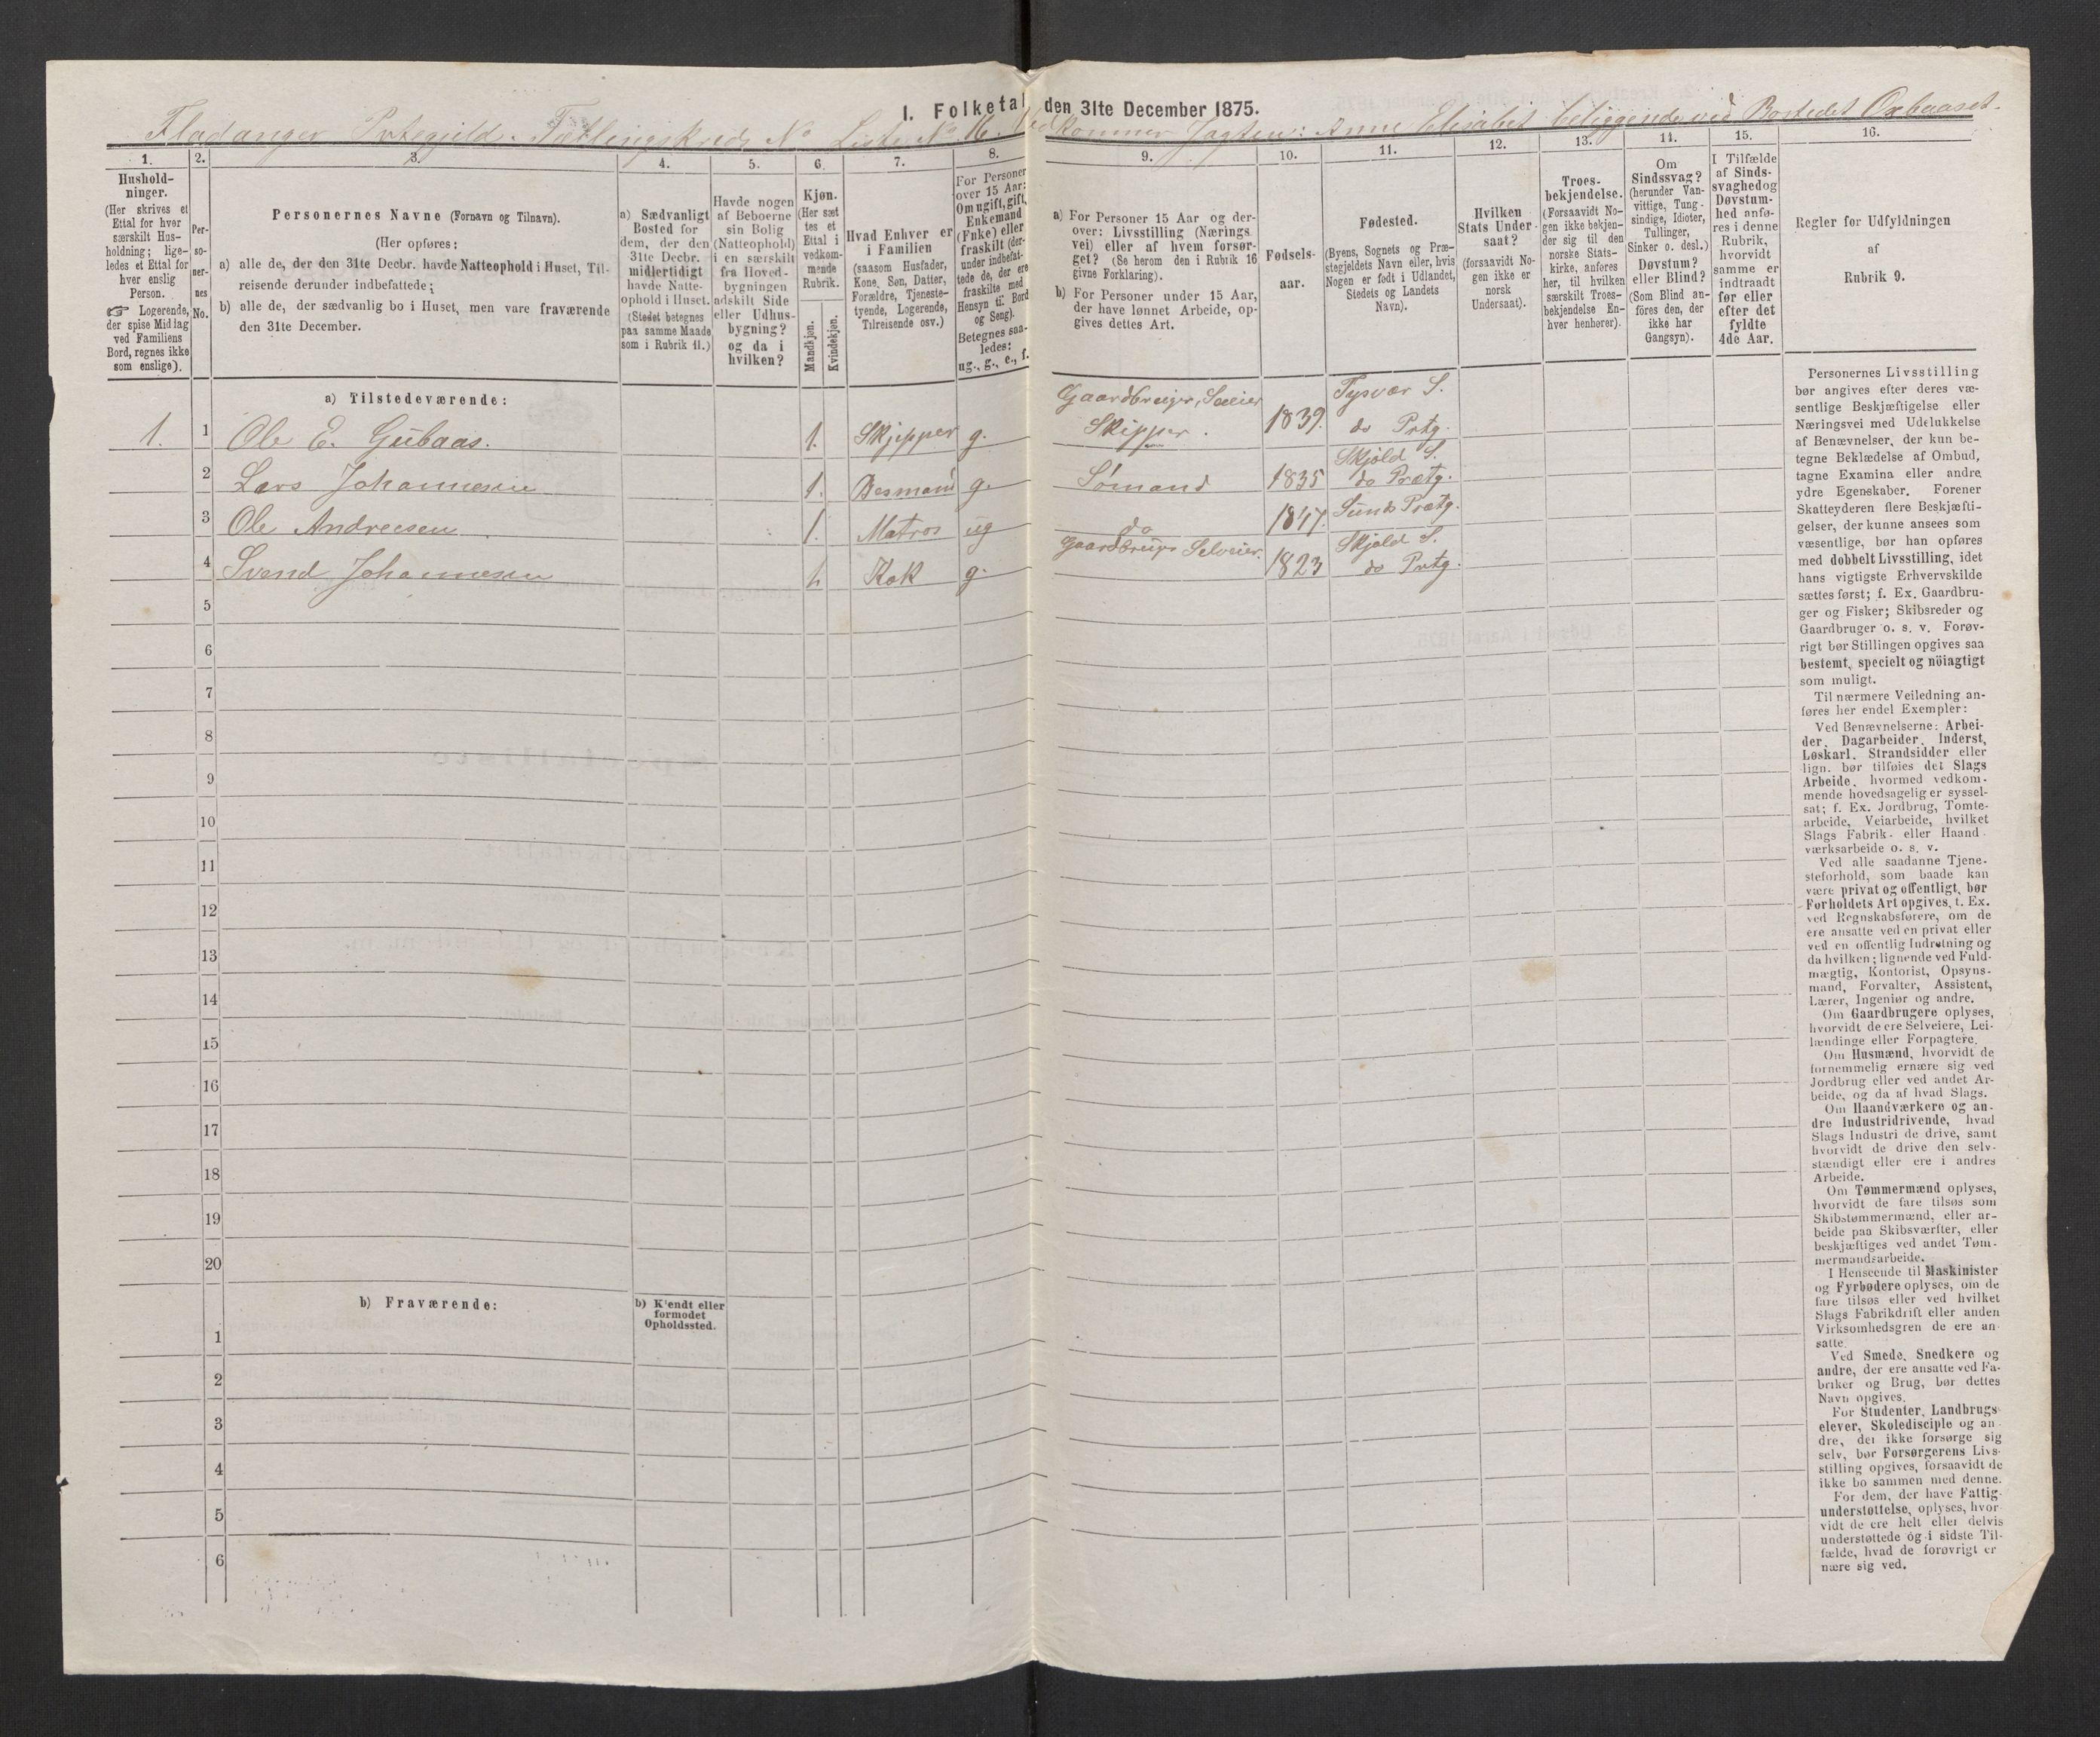 1. Folketal den 31te December 1875.
Fladanger Prstegjeld. Tællingskreds No Liste No 16. Vedkommer Jagten: Anne Elisabet beliggende ved Bostedet Oxbaaset.
1.
Hushold-
ninger.
(Her skrives et
Ettal for hver
særskilt Hus-
holdning; lige-
ledes et Ettal for
hver enslig
Person.
☞ Logerende,
der spise Middag
ved Familiens
Bord, regnes ikke
som enslige).
2.
Per-
so-
ner-
nes
No.
3.
Personernes Navne (Fornavn og Tilnavn).
(Her opføres:
a) alle de, der den 31te Decbr. havde Natteophold i Huset, Til-
reisende derunder indbefattede;
b) alle de, der sædvanlig bo i Huset, men vare fraværende
den 31te December.
4.
a) Sædvanligt
Bosted for
dem, der den
31te Decbr.
midlertidigt
havde Natte-
ophold i Huset.
(Stedet betegnes
paa samme Maade
som i Rubrik 11.)
5.
Havde nogen
af Beboerne
sin Bolig
(Natteophold)
i en særskilt
fra Hoved-
bygningen
adskilt Side
eller Udhus-
bygning?
og da i
hvilken?
6.
Kjøn.
(Her sæt
tes et
Ettal i
vedkom-
mende
Rubrik.
Mandkjøn.
Kvindekjøn.
7.
Hvad Enhver er
i Familien
(saasom Husfader,
Kone, Søn, Datter,
Forældre, Tjeneste-
tyende, Logerende,
Tilreisende osv.)
8.
For Personer
over 15 Aar:
Om ugift, gift,
Enkemand
(Enke) eller
fraskilt (der-
under indbefat-
tede de, der ere
fraskilte med
Hensyn til Bord
og Seng).
Betegnes saa-
ledes:
ug., g., e., f.
9.
a) For Personer 15 Aar og der-
over: Livsstilling (Nærings
vei) eller af hvem forsør-
get? (Se herom den i Rubrik 16
givne Forklaring).
b) For Personer under 15 Aar,
der have lønnet Arbeide, op-
gives dettes Art.
10.
Fødsels-
aar.
11.
Fødested.
(Byens, Sognets og Præ-
stegjeldets Navn eller, hvis
Nogen er født i Udlandet,
Stedets og Landets
Navn).
12.
Hvilken
Stats Under-
saat?
(forsaavidt No-
gen ikke er
norsk
Undersaat).
13.
Troes-
bekjendelse.
(Forsaavidt No-
gen ikke bekjen-
der sig til den
norske Stats-
kirke, anføres
her, til hvilken
særskilt Troes-
bekjendelse En-
hver henhører).
14.
Om
Sindssvag?
(herunder Van-
vittige, Tung-
sindige, Idioter,
Tullinger,
Sinker o. desl.)
Døvstum?
eller Blind?
(Som Blind an-
føres den, der
ikke har
Gangsyn).
15.
I Tilfælde
af Sinds-
svaghed og
Døvstum-
hed anfø-
res i denne
Rubrik,
hvorvidt
samme er
indtraadt
før eller
efter det
fyldte
4de Aar.
16.
Regler for Udfyldningen
af
Rubrik 9.
a) Tilstedeværende:
1. 1 Ole E. Gubaas. 1. Skjipper g. Gaardbruger, Seleier Skipper. 1839. Tysvær S. do Prtg.
2 Lars Johannesen 1. Besmand g. Sømand 1835 Skjold S. do Prætg.
3 Ole Andreesen 1. Matros ug do 1847. Sunds Prætg.
4 Svend Johannesen 1. Kok g. Gaardbruger Selveier. 1823 Skjold S. do Prtg.
5
6
7
8
9
10
11
12
13
14
15
16
17
18
19
20
b) Fraværende:
b) Kjendt eller
formodet
Opholdssted.
1
2
3
4
5
6
Personernes Livsstilling
bør angives efter deres væ-
sentlige Beskjæftigelse eller
Næringsvei med Udelukkelse
af Benævnelser, der kun be-
tegne Beklædelse af Ombud,
tagne Examina eller andre
ydre Egenskaber. Forener
Skatteyderen flere Beskjæfti-
gelser, der kunne ansees som
væsentlige, bør han opføres
med dobbelt Livsstilling, idet
hans vigtigste Erhvervskilde
sættes først; f. Ex. Gaardbru-
ger og Fisker; Skibsreder og
Gaardbruger o. s. v. Forøv-
rigt bør Stillingen opgives saa
bestemt, specielt og nöiagtigt
som muligt.
Til nærmere Veiledning an-
føres her endel Exempler:
Ved Benævnelserne: Arbei-
der, Dagarbeider, Inderst,
Løskarl, Strandsidder eller
lign. bør tilføies det Slags
Arbeide, hvormed vedkom-
mende hovedsagelig er syssel-
sat; f. Ex. Jordbrug, Tomte-
arbeide, Veiarbeide, hvilket
Slags Fabrik- eller Haand-
værksarbeide o. s. v.
Ved alle saadanne Tjene-
steforhold, som baade kan
være privat og offentligt, bør
Forholdets Art opgives, t. Ex.
ved Regnskabsførere, om de
ere ansatte ved en privat eller
ved en offentlig Indretning og
da hvilken; lignende ved Fuld-
mægtig, Kontorist, Opsyns-
mand, Forvalter, Assistent,
Lærer, Ingeniør og andre.
Om Gaardbrugere oplyses,
hvorvidt de ere Selveiere, Lei-
lændinge eller Forpagtere.
Om Husmænd, hvorvidt de
fornemmelig ernære sig ved
Jordbrug eller ved andet Ar-
beide, og da af hvad Slags.
Om Haandværkere og an-
dre Industridrivende, hvad
Slags Industri de drive, samt
hvorvidt de drive den selv-
stændigt eller ere i andres
Arbeide.
Om Tømmermænd oplyses,
hvorvidt de fare tilsøs som
Skibstømmermænd, eller ar-
beide paa Skibsværfter, eller
beskjæftiges ved andet Tøm-
mermandsarbeide.
I Henseende til Maskinister
og Fyrbødere oplyses, om de
fare tilsøs eller ved hvilket
Slags Fabrikdrift eller anden
Virksomhedsgren de ere an-
satte.
Ved Smede, Snedkere og
andre, der ere ansatte ved Fa-
briker og Brug, bør dettes
Navn opgives.
For Studenter, Landbrugs-
elever, Skoledisciple og an-
dre, der ikke forsørge sig
selv, bør Forsørgerens Livs-
stilling opgives, forsaavidt de
ikke bo sammen med denne.
For dem, der have Fattig-
understøttelse, oplyses, hvor-
vidt de ere helt eller delvis
understøttede og i sidste Til-
fælde, hvad de forøvrigt er
nære sig ved.